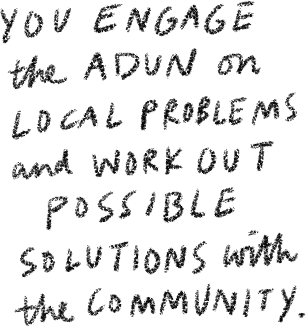 YOU ENGAGE
the ADUN on
LOCAL PROBLEMS
and WORK OUT
POSSIBLE
SOLUTIONS with
the COMMUNITY.